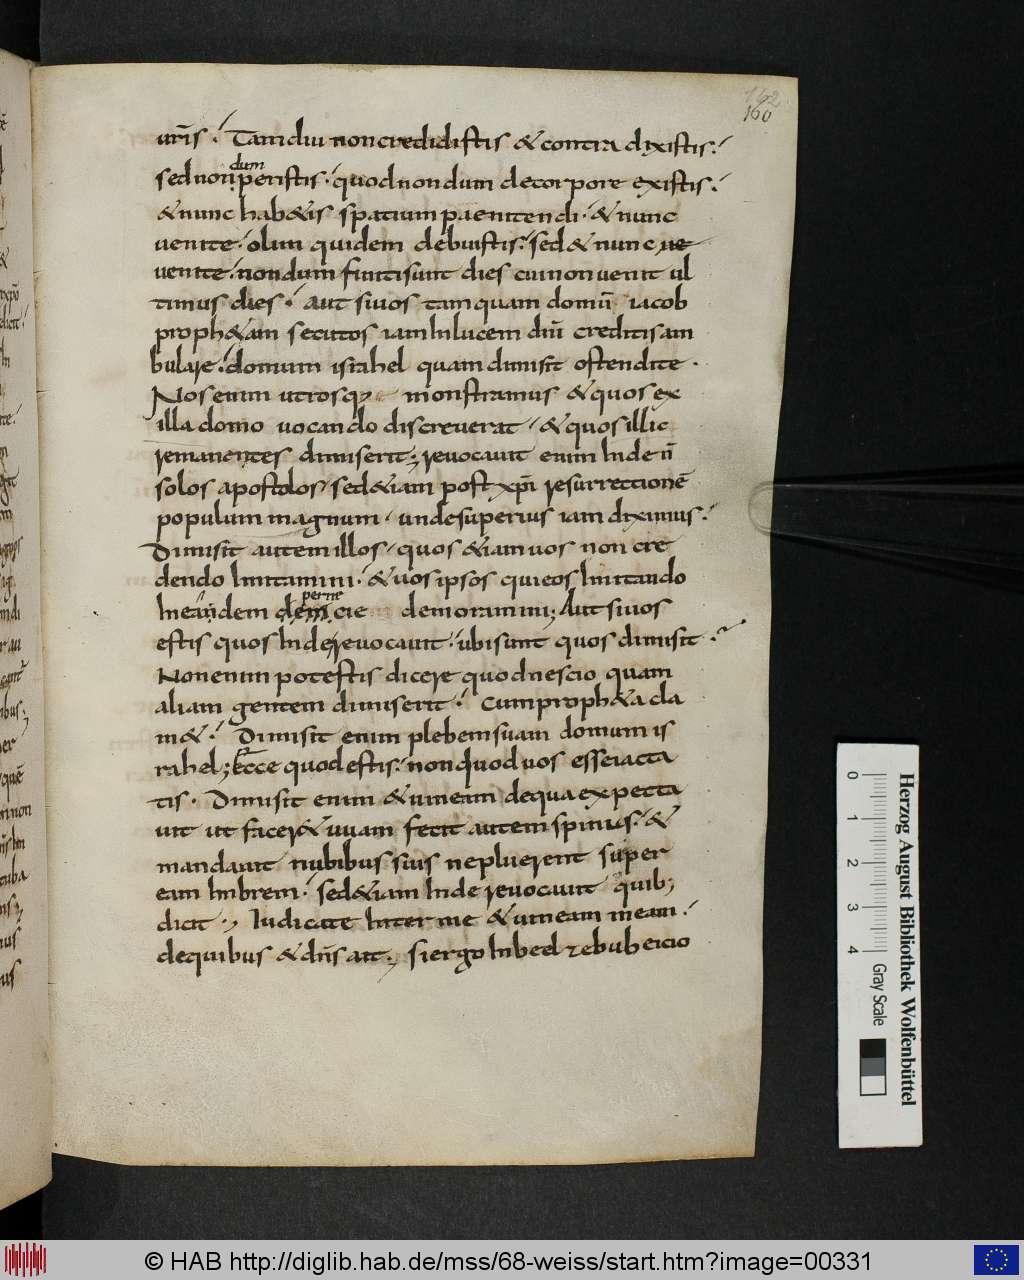 162
160
ur̄is · Tamdiu non credidistis & contradixistis ·
sed non dum peristis · quod nondum de corpore existis ·
& nunc hab&is spatium paenitendi · & nunc
uenite · olim quidem debuistis · sed & nunc ue
uenite · nondum finiti sunt dies cui non uenit ul
timus dies · Aut si uos tamquam domū iacob
proph&am secutos iam In lucem diu̅ creditis am
bulare · domum israhel quam dimisit ostendite ·
Nos enim utrosq; monstramus & quos ex
illa domo uocando discreuerat · & quos illic
remanentes dimiserit ; reuocauit enim Inde n̄
solos apostolos · sed &iam post xp̄i resurrectionē
populum magnum · unde superius iam diximus ·
Dimisit autem illos · quos &iam uos non cre
dendo Imitamini · & uos ipsos qui eos Imitando
In eandem dem perni cie demoramini ; Aut si uos
estis quos Inde reuocauit · ubi sunt quos dimisit ·
Non enim potestis dicere quod nescio quam
aliam gentem dimiserit · Cum proph&a cla
m& · Dimisit enim plebem suam domum is
rahel ; Ecce quod estis · non quod uos esse iacta
tis · Dimisit enim & uineam de qua expecta
uit ut facer& uuam fecit autem spinas · &
mandauit nubibus suis ne pluerent super
eam Imbrem · sed &iam Inde reuocauit quib;
dicit · ; Iudicate Inter me & uineam meam ·
de quibus & dn̄s ait ; si ergo In beelzebub eicio
Herzog August Bibliothek Wolfenbüttel
0 1 2 3 4 Gray Scale
© HAB http://diglib.hab.de/mss/68-weiss/start.htm?image=00331